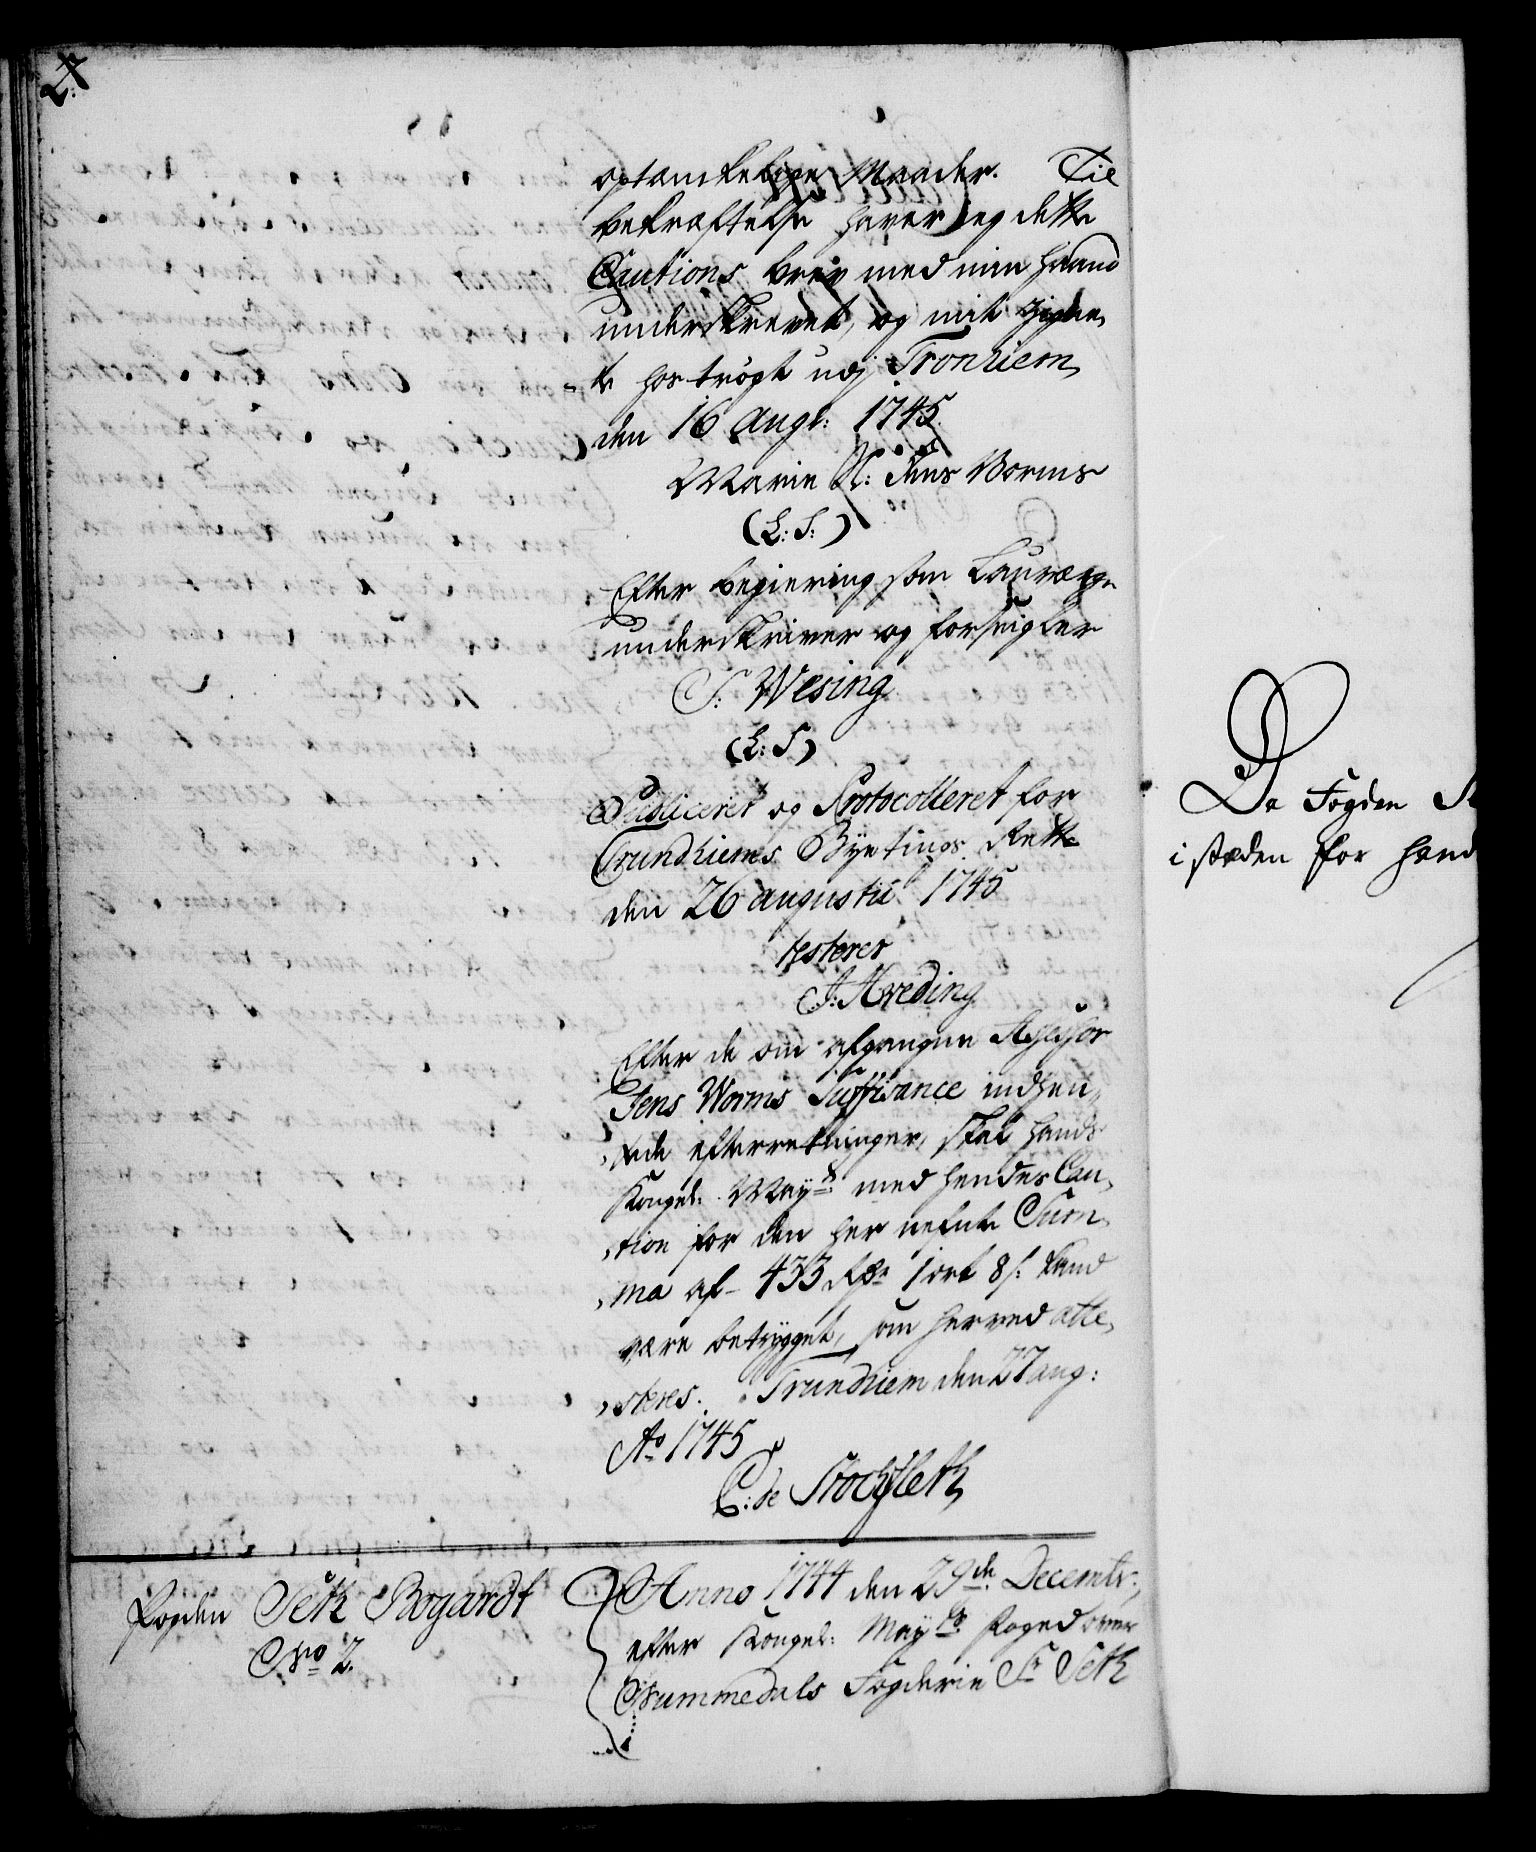 optænckelige Maader. Til
bekræftelse haver jeg dette
Cautions brev med min haand
underskrevet, og mit Zigne„
te hoströgt udj Tronhiem,
den 16 Augs: 1745.
Marie Sl: Jens Worms
(L: S:)
Efter begiering som Laurværge
underskriver og forseigler
S: Wesing
(L: S)
Publiceret og Protocolleret for
Trundhiems Byetings Rette
den 26 augustii 1745
testerer
J: Hveding
Efter de om afgangne Assessor
Jens Worms Suffisance indhen„
„tede efterretninger, skal hands
Kongel: Mayts: med hendes Cau„
„tion for den her nefnte Sum„
„ma af 433 Rdr 1 ort 8 s: kand
være betrygget, som herved atte„
„steres. Trundhiem den 27 aug:
Ao 1745
C: de Stockfleth
Fogden Seth Bogardt
No 2.
Anno 1744 den 29de Decembr:
efter Kongel: Mayts Foged over
Nummedals Fogderie Sr Seth
De Fogden
i stæden for hand